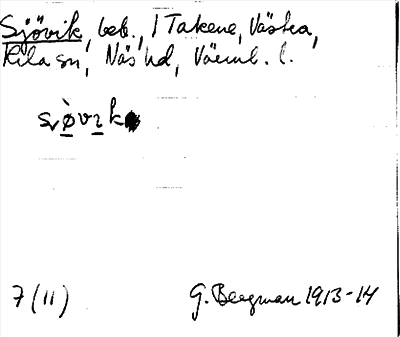 Sjövik, beb., i Takene, Västra,
Kila sn, Näs hd, Värml. l.
sòvik
7 (11) G. Bergman 1913-14